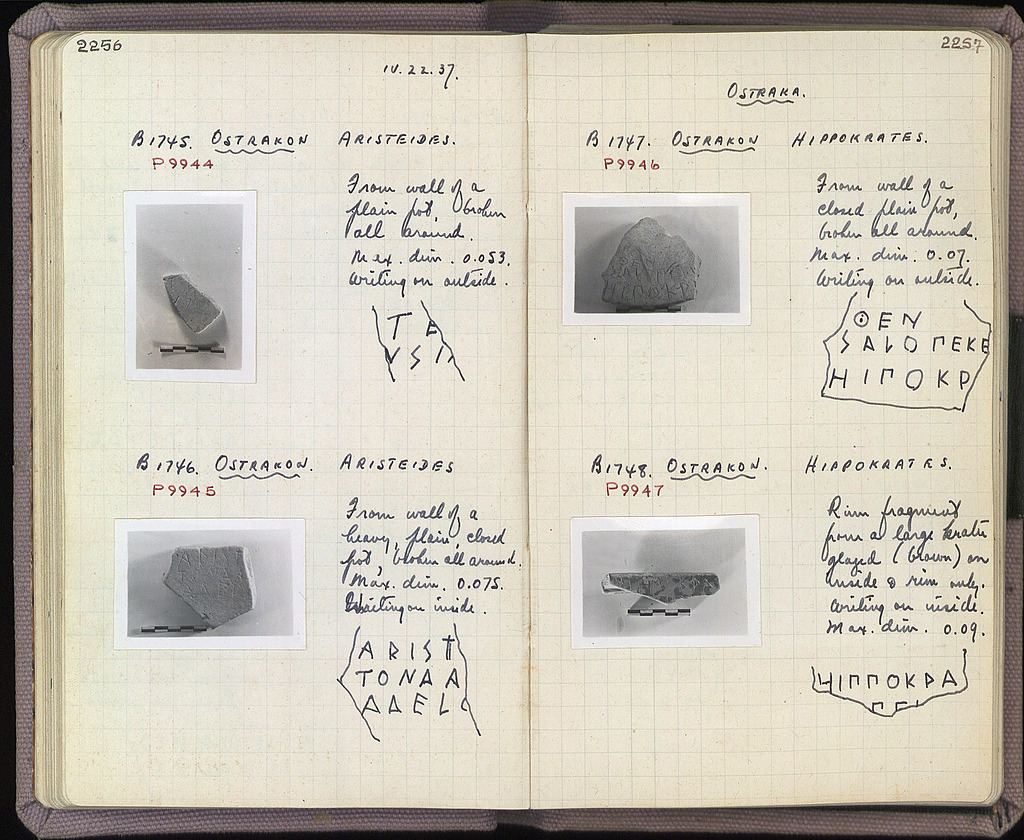 2256
IV. 22. 37.
B 1745. OSTRAKON ARISTEIDES.
P 9944
From wall of a
plain pot, broken
all around.
Max. dim. 0.053.
Writing on outside.
Τ Ε
V S I
B 1746. OSTRAKON. ARISTEIDES
P 9945
From wall of a
heavy, plain, closed
pot, broken all around.
Max. dim. 0.075.
Writing on inside.
A R I S T
T O N A A
Δ Δ E L
2257
OSTRAKA.
B 1747. OSTRAKON HIPPOKRATES.
P 9946
From wall of a
closed plain pot,
broken all around.
Max. dim. 0.07.
Writing on outside.
ʘ E N
S A L O Π E K E
H I Π O K P
B 1748. OSTRAKON. HIPPOKRATES.
P 9947
Rim fragment
from a large krater
glazed (brown) on
inside & rim only.
Writing on inside.
Max. dim. 0.09.
H I Π Π O K P A